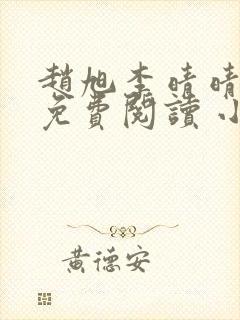 趙旭李晴晴
免費閱讀小
黃德安